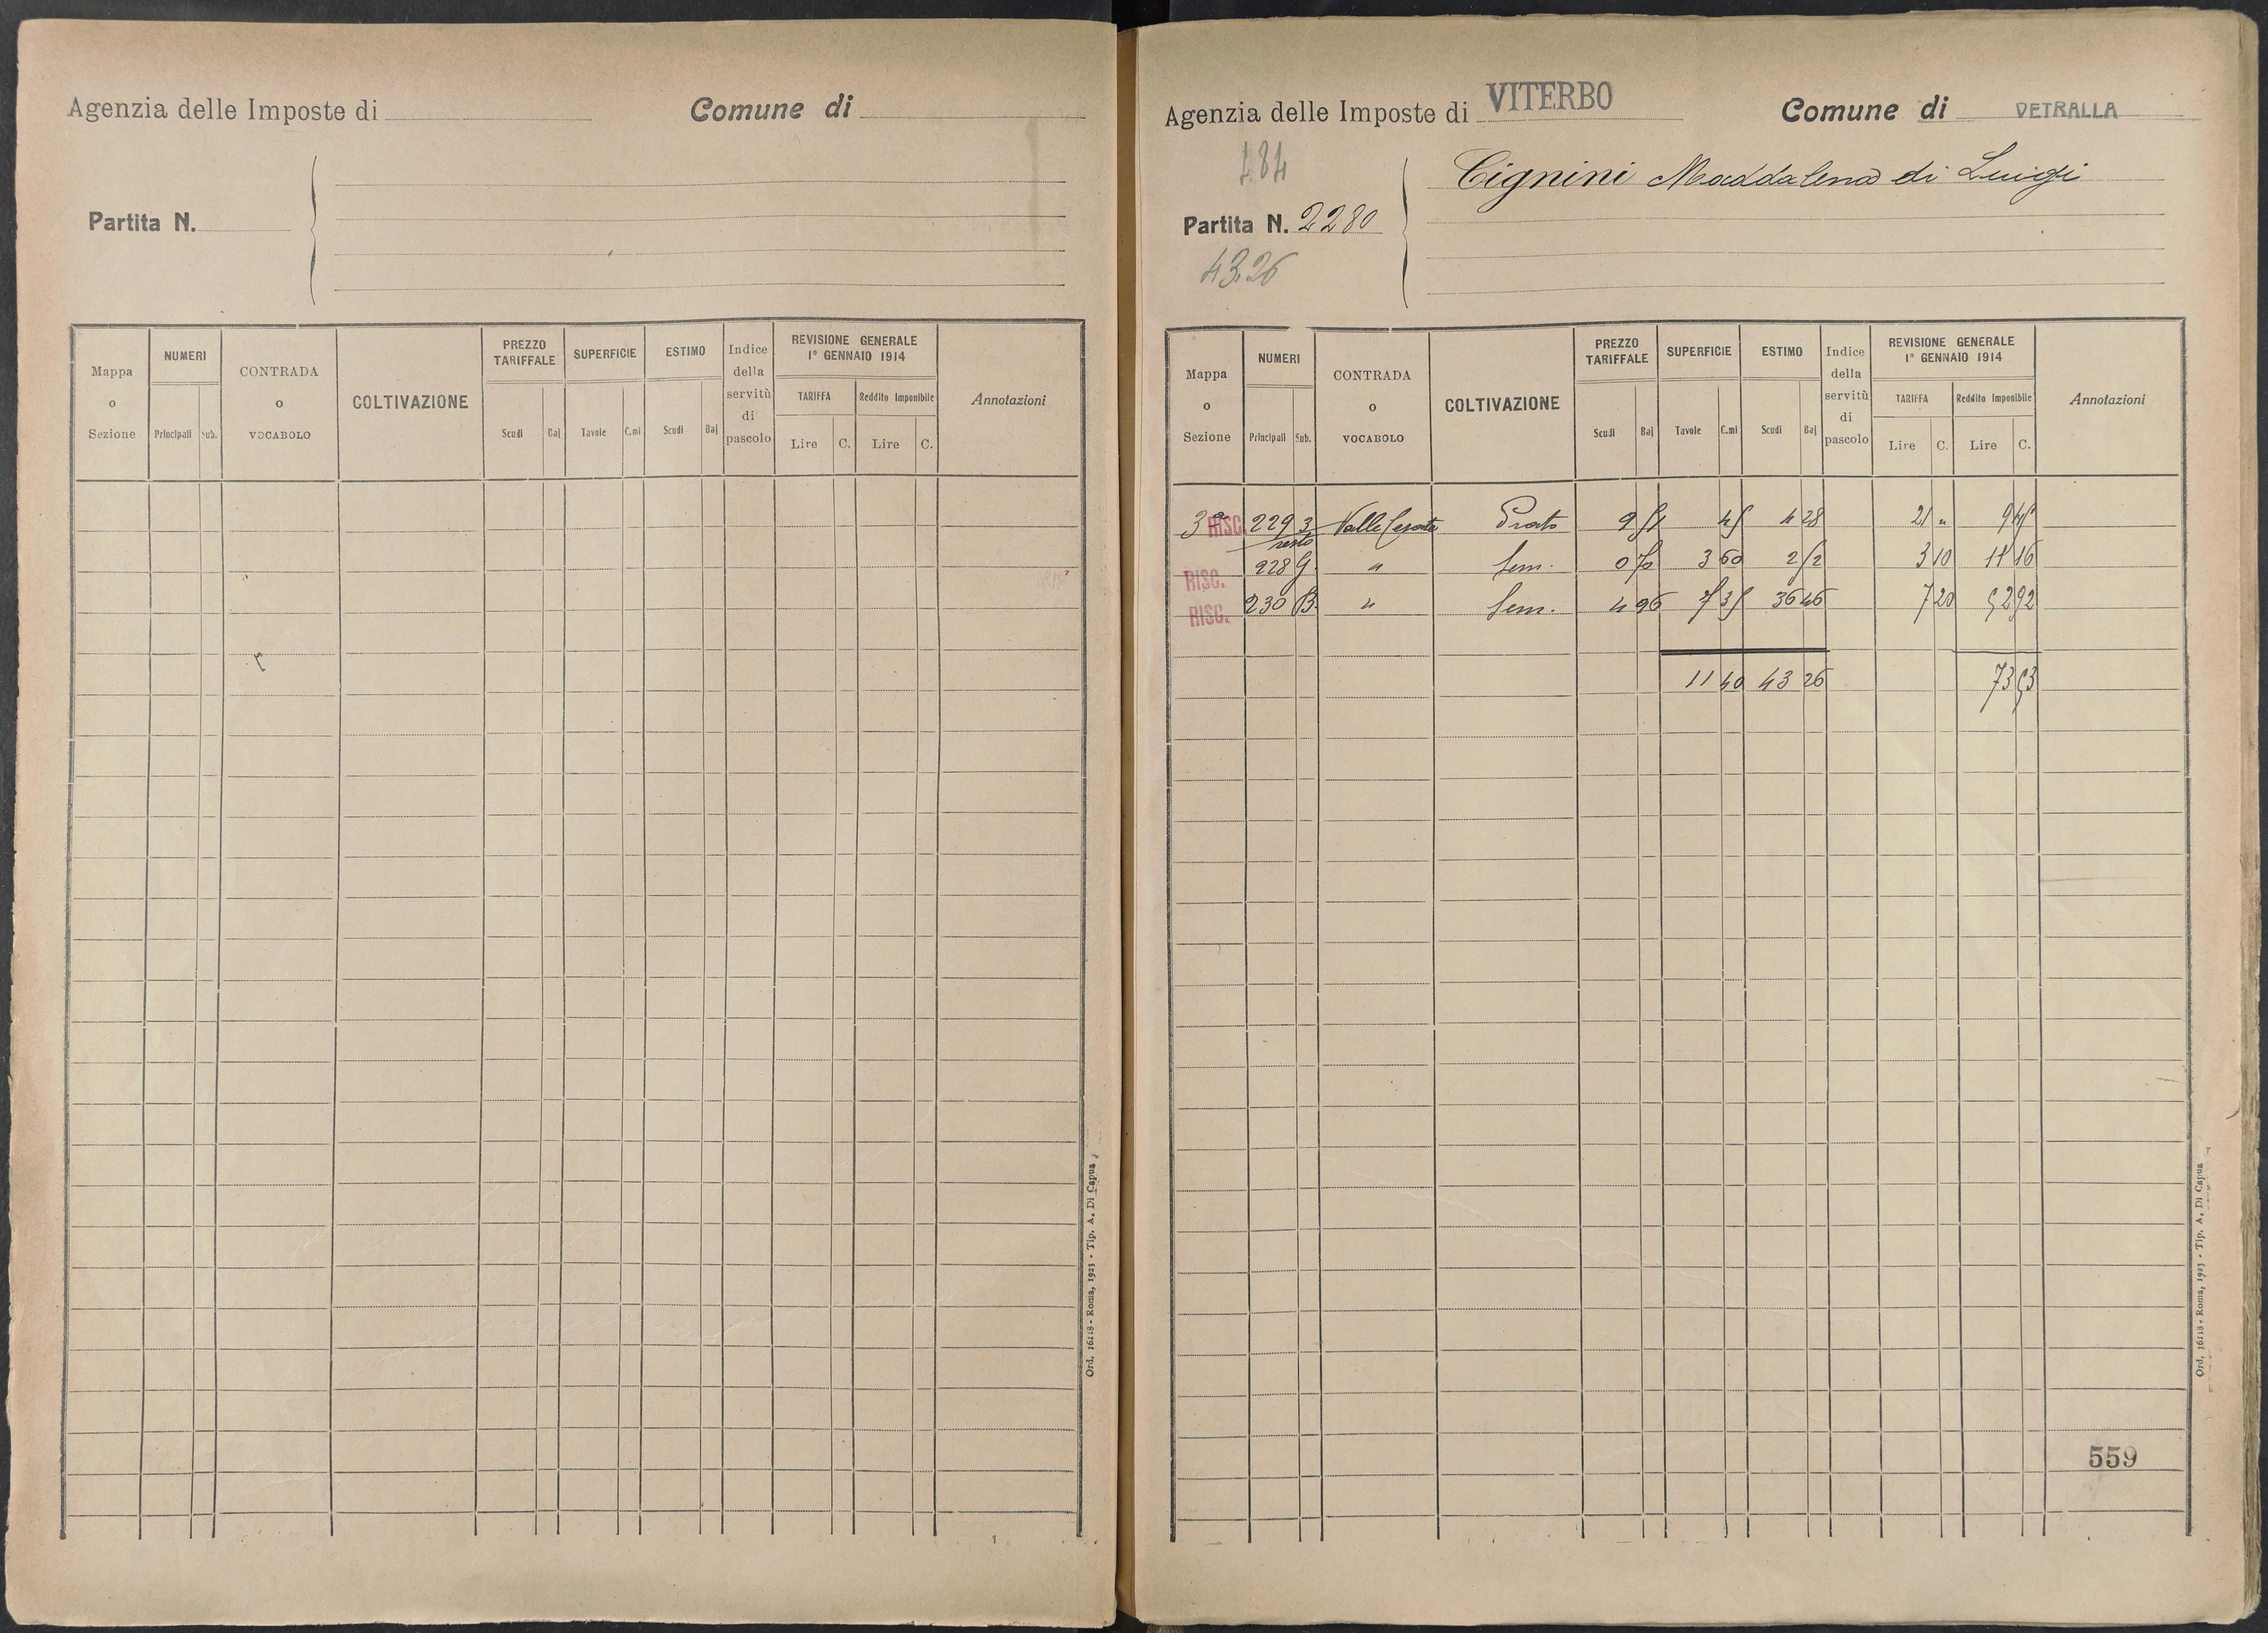 Agenzia delle Imposte di
Comune di
Partita N.
Mappa o Sezione
NUMERI
Principali
Sub.
CONTRADA o VOCABOLO
COLTIVAZIONE
PREZZO TARIFFALE
Scudi
Baj
SUPERFICIE
Tavole
C.mi
ESTIMO
Scudi
Baj
Indice della servitù di pascolo
REVISIONE GENERALE
1° GENNAIO 1914
TARIFFA
Reddito Imponibile
Lire C. Lire C.
Annotazioni
Ord. 16118 - Roma, 1923 - Tip. A. Di Capua
Agenzia delle Imposte di VITERBO
Comune di VETRALLA
484
Cignini Maddalena di Luigi
Partita N. 2280
43.26
Mappa o Sezione
NUMERI
Principali
Sub.
CONTRADA o VOCABOLO
COLTIVAZIONE
PREZZO TARIFFALE
Scudi
Baj
SUPERFICIE
Tavole
C.mi
ESTIMO
Scudi
Baj
Indice della servitù di pascolo
REVISIONE GENERALE
1° GENNAIO 1914
TARIFFA
Reddito Imponibile
Lire C. Lire C.
Annotazioni
3a RISC. 229 3 Valle Prato 9 51 45 4 28 21 " 9 45
resto
RISC. 228 " Sem. 3 60 2 52 3 10 11 16
RISC. 230 B " Sem. 4 96 7 35 36 46 7 20 52 92
11 40 43 26 73 53
559
Ord. 16118 - Roma, 1923 - Tip. A. Di Capua